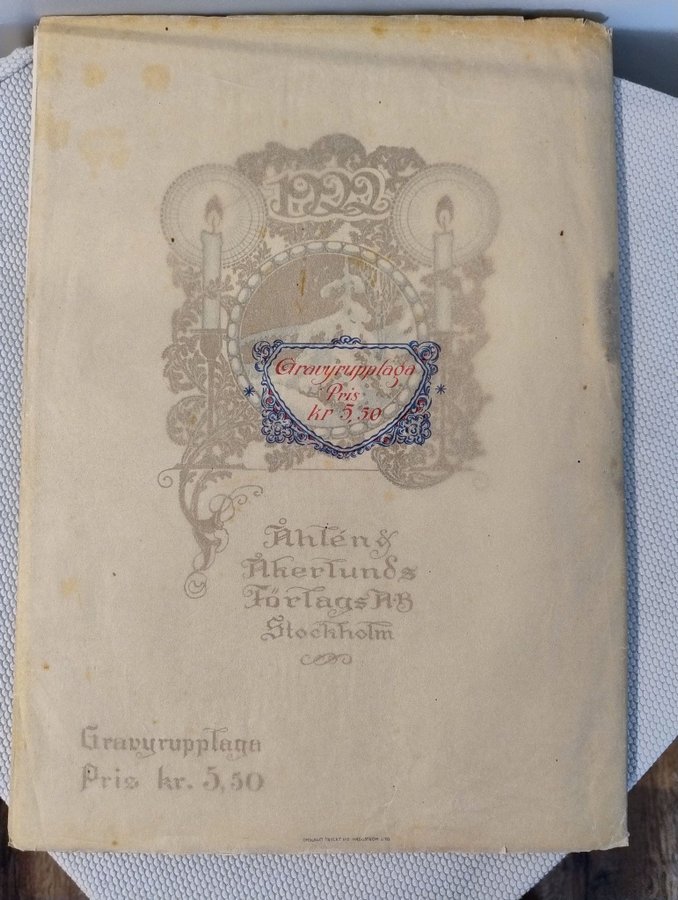 1922
Gravyrupplaga
Pris
kr 5,50
Åhlén &
Åkerlunds
Förlags A-B
Stockholm
Gravyrupplaga
Pris kr. 5,50